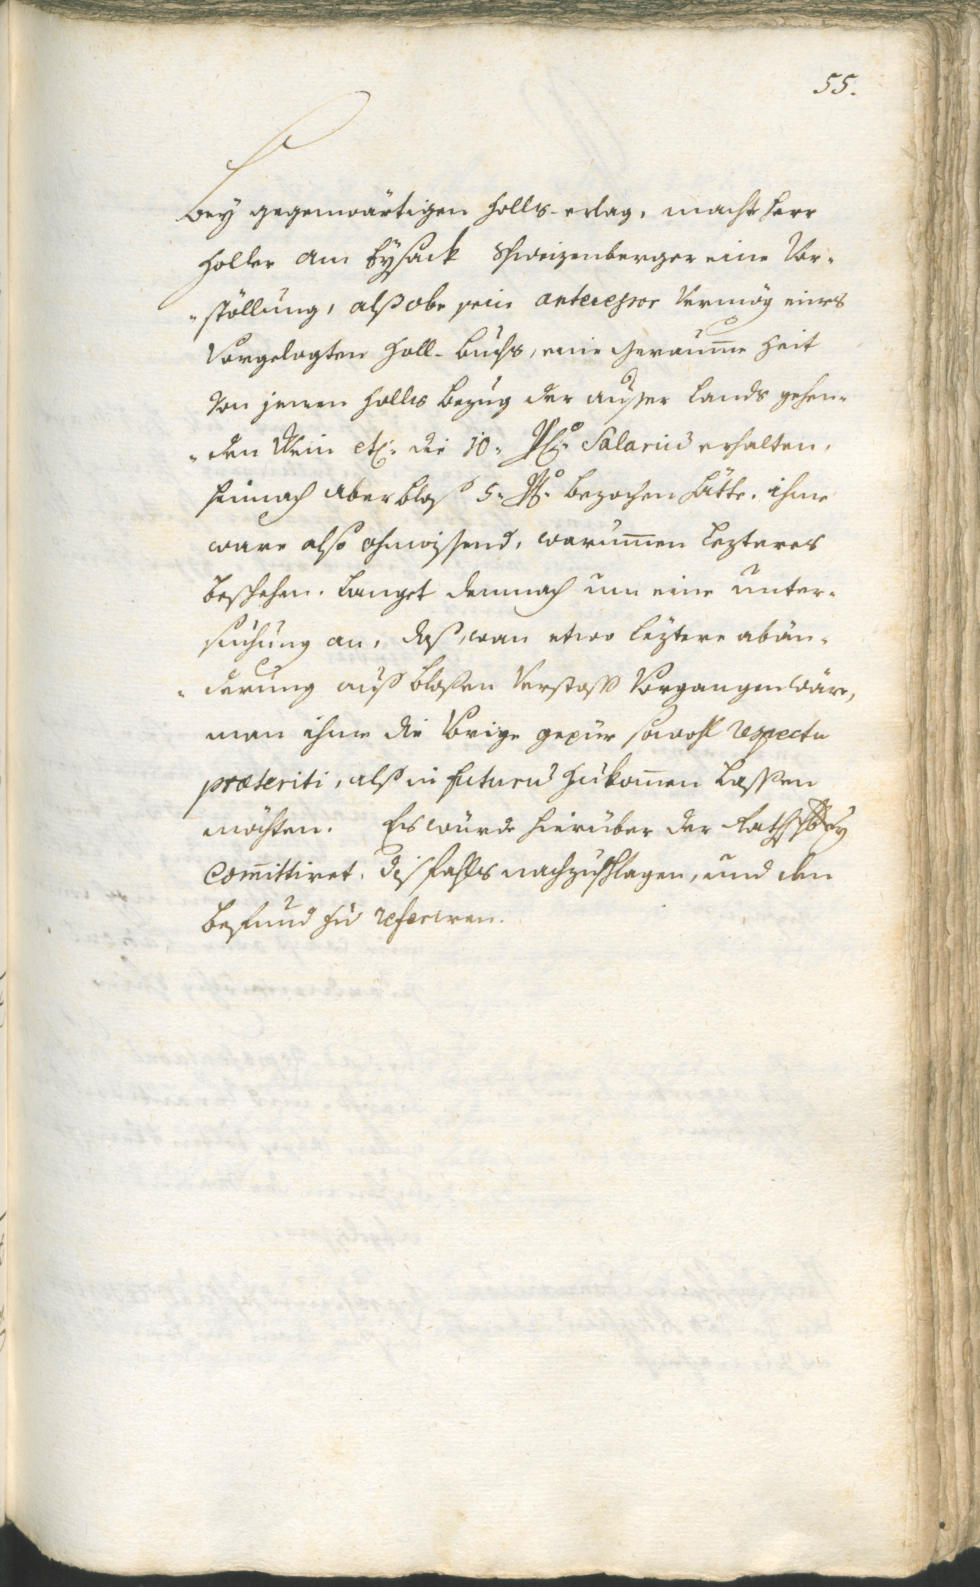 55.
Bey gegenwärtigen Zolls-erlag, macht Herr
Zoller am Eysack Schweizenberger eine Vor-
stöllung, alß obe sein antecessor Vermög eines
Vorgelegten Zoll-buchs, eine geraume Zeit
Von jenen Zolls bezug der ausser Lands gehen-
den Wein etc: die 10. Salariu[m] erhalten,
hinnach aber bloß 5. bezochen hätte. ihme
ware also ohnwissend, warummen lezteres
beschehen. langet demnach um eine unter-
suchung an, daß, wan etwo leztere abän-
derung auß bloßen Verstoß Vorgangen wäre,
man ihme die Vorige gepür sowohl respectu
præteriti, alß in futuru[m] zukom̄en lassen
möchten. Es würde hierüber der
Com̄ittiret, disfahls nachzuschlagen, und den
befund zu referiren.